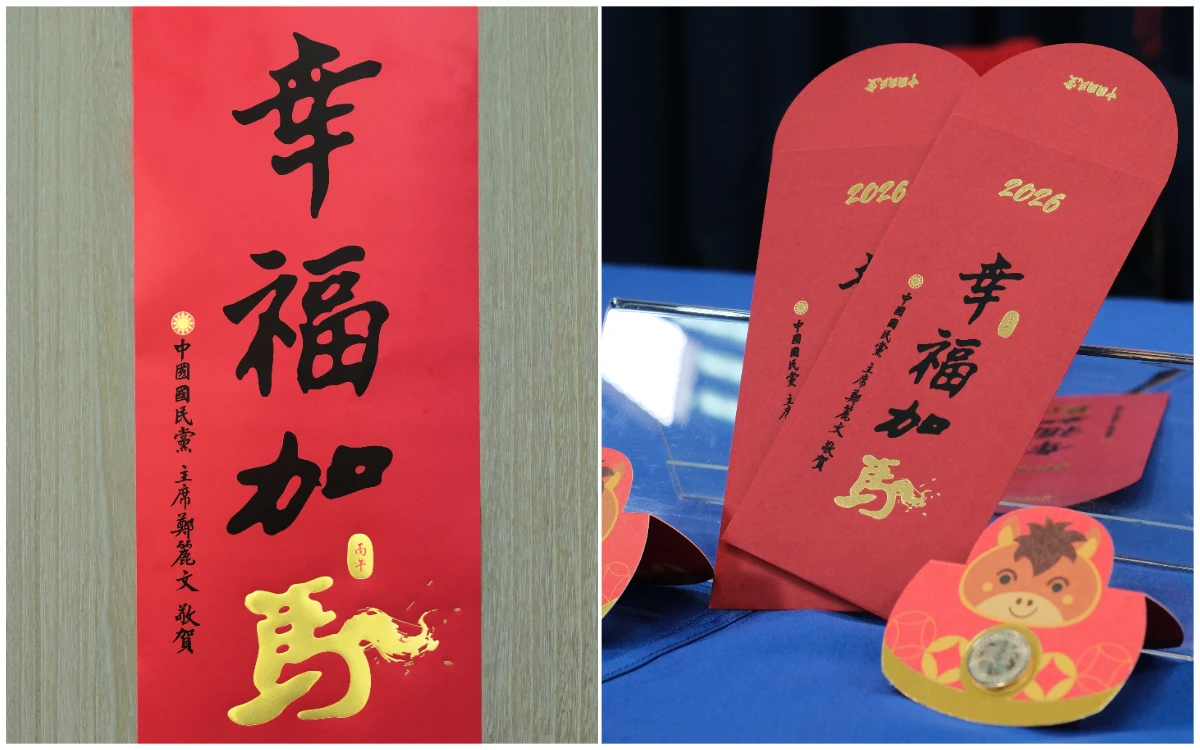 幸福加馬
丙午
中國國民黨 主席鄭麗文 敬賀
中國國民黨
2026
幸福加馬
中國國民黨 主席鄭麗文 敬賀
中國國民黨
2026
中國國民黨 主席